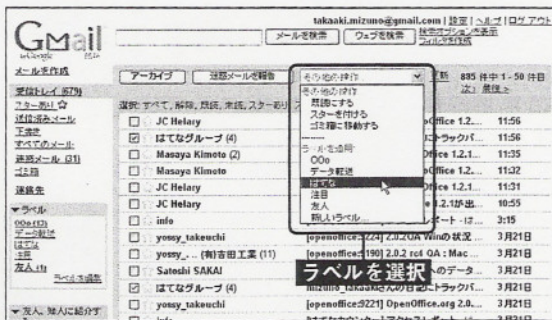 takaaki.mizuno@gmail.com | 設定 | ヘルプ | ログアウト
Gmail
by Google
メールを検索 ウェブを検索 検索オプションを表示
フィルタを作成
メールを作成
受信トレイ (679)
スター あり ☆
送信済みメール
下書き
すべてのメール
迷惑メール (31)
ゴミ箱
連絡先
▼ラベル
OOo (13)
データ転送
はてな
注目
友人 (1)
ラベルを編集
▼友人、知人に紹介す
アーカイブ 迷惑メールを報告 その他の操作 更新 885 件中 1 - 50 件目
次› 最後 »
選択: すべて, 解除, 既読, 未読, スターあり
その他の操作
既読にする
スターを付ける
ゴミ箱に移動する
--------
ラベルを適用:
OOo
データ転送
はてな
注目
友人
新しいラベル...
JC Helary Office 1.2... 11:56
はてなグループ (4) にトラックバ... 11:56
Masaya Kimoto (2) Office 1.2.1... 11:35
Masaya Kimoto Office 1.2... 11:32
JC Helary Office 1.2.1... 11:31
JC Helary 1.2.1が出... 10:55
info レポート - は... 3:15
yossy_takeuchi [openoffice:5224] 2.0.2QA Winの状況 ... 3月21日
yossy_... (有)吉田工業 (11) [openoffice:5190] 2.0.2 rc4 QA : Mac ... 3月21日
Satoshi SAKAI へのデータ... 3月21日
はてなグループ (4) mizuno_takaakiさんの日記にトラックバ... 3月21日
yossy_takeuchi [openoffice:5221] OpenOffice.org 2.0.... 3月21日
info 3月21日
ラベルを選択